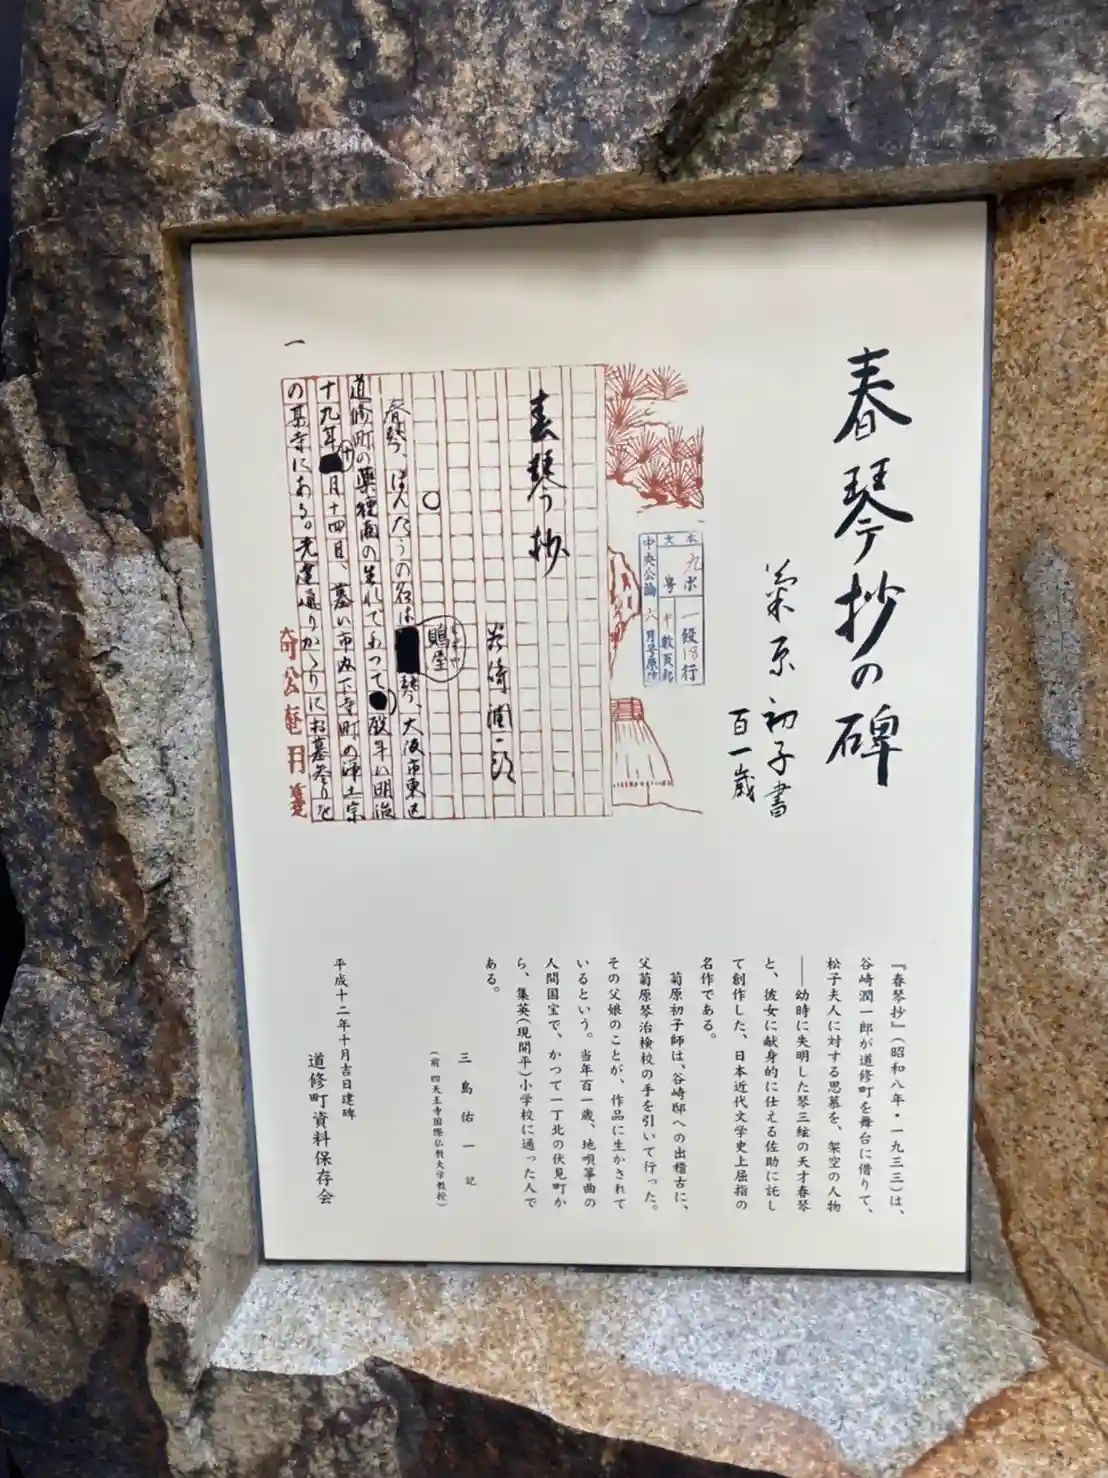 春琴抄の碑
菊原初子書
百一歳
本文 九ポ 一段18行
中央公論 六月号原稿
春琴抄
谷崎潤一郎
○
春琴、ほんたうの名は
鵙屋
もずや
琴、大阪市東区
道修町の薬種商の生れで
歿年は明治
十九年
十
月十四日、墓は市内下寺町の浄土宗
の某寺にある。先達通りかゝりにお墓参りを
一
『春琴抄』(昭和八年・一九三三)は、
谷崎潤一郎が道修町を舞台に借りて、
松子夫人に対する思慕を、架空の人物
――幼時に失明した琴三絃の天才春琴
と、彼女に献身的に仕える佐助に託し
て創作した、日本近代文学史上屈指の
名作である。
菊原初子師は、谷崎邸への出稽古に、
父菊原琴治検校の手を引いて行った。
その父娘のことが、作品に生かされて
いるという。当年百一歳、地唄箏曲の
人間国宝で、かつて一丁北の伏見町か
ら、集英(現開平)小学校に通った人で
ある。
三島佑一 記
(前 四天王寺国際仏教大学教授)
平成十二年十月吉日建碑
道修町資料保存会